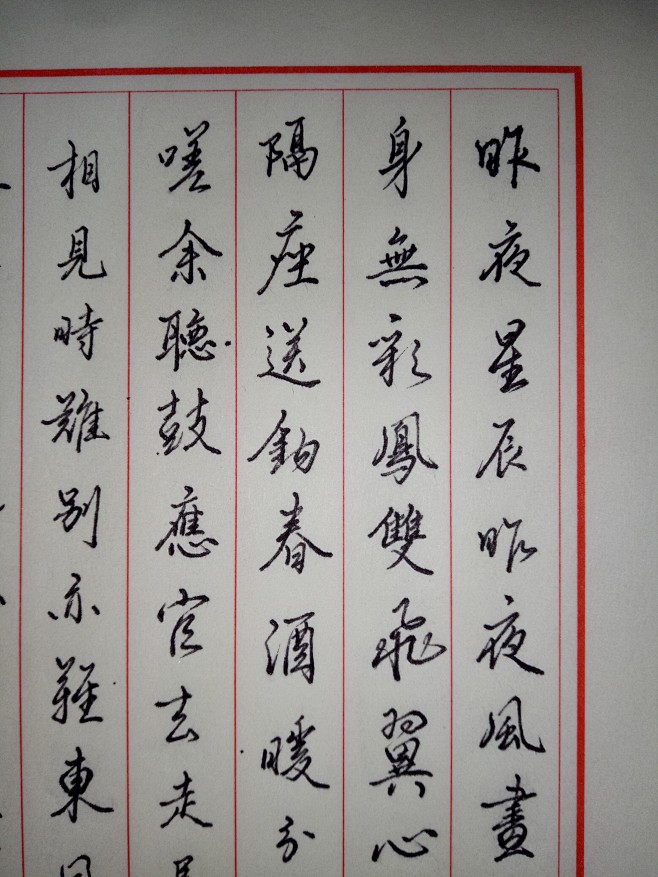 昨夜星辰昨夜風畫
身無彩鳳雙飛翼心
隔座送鉤春酒暖分
嗟余聽鼓應官去走
相見時難別亦難東